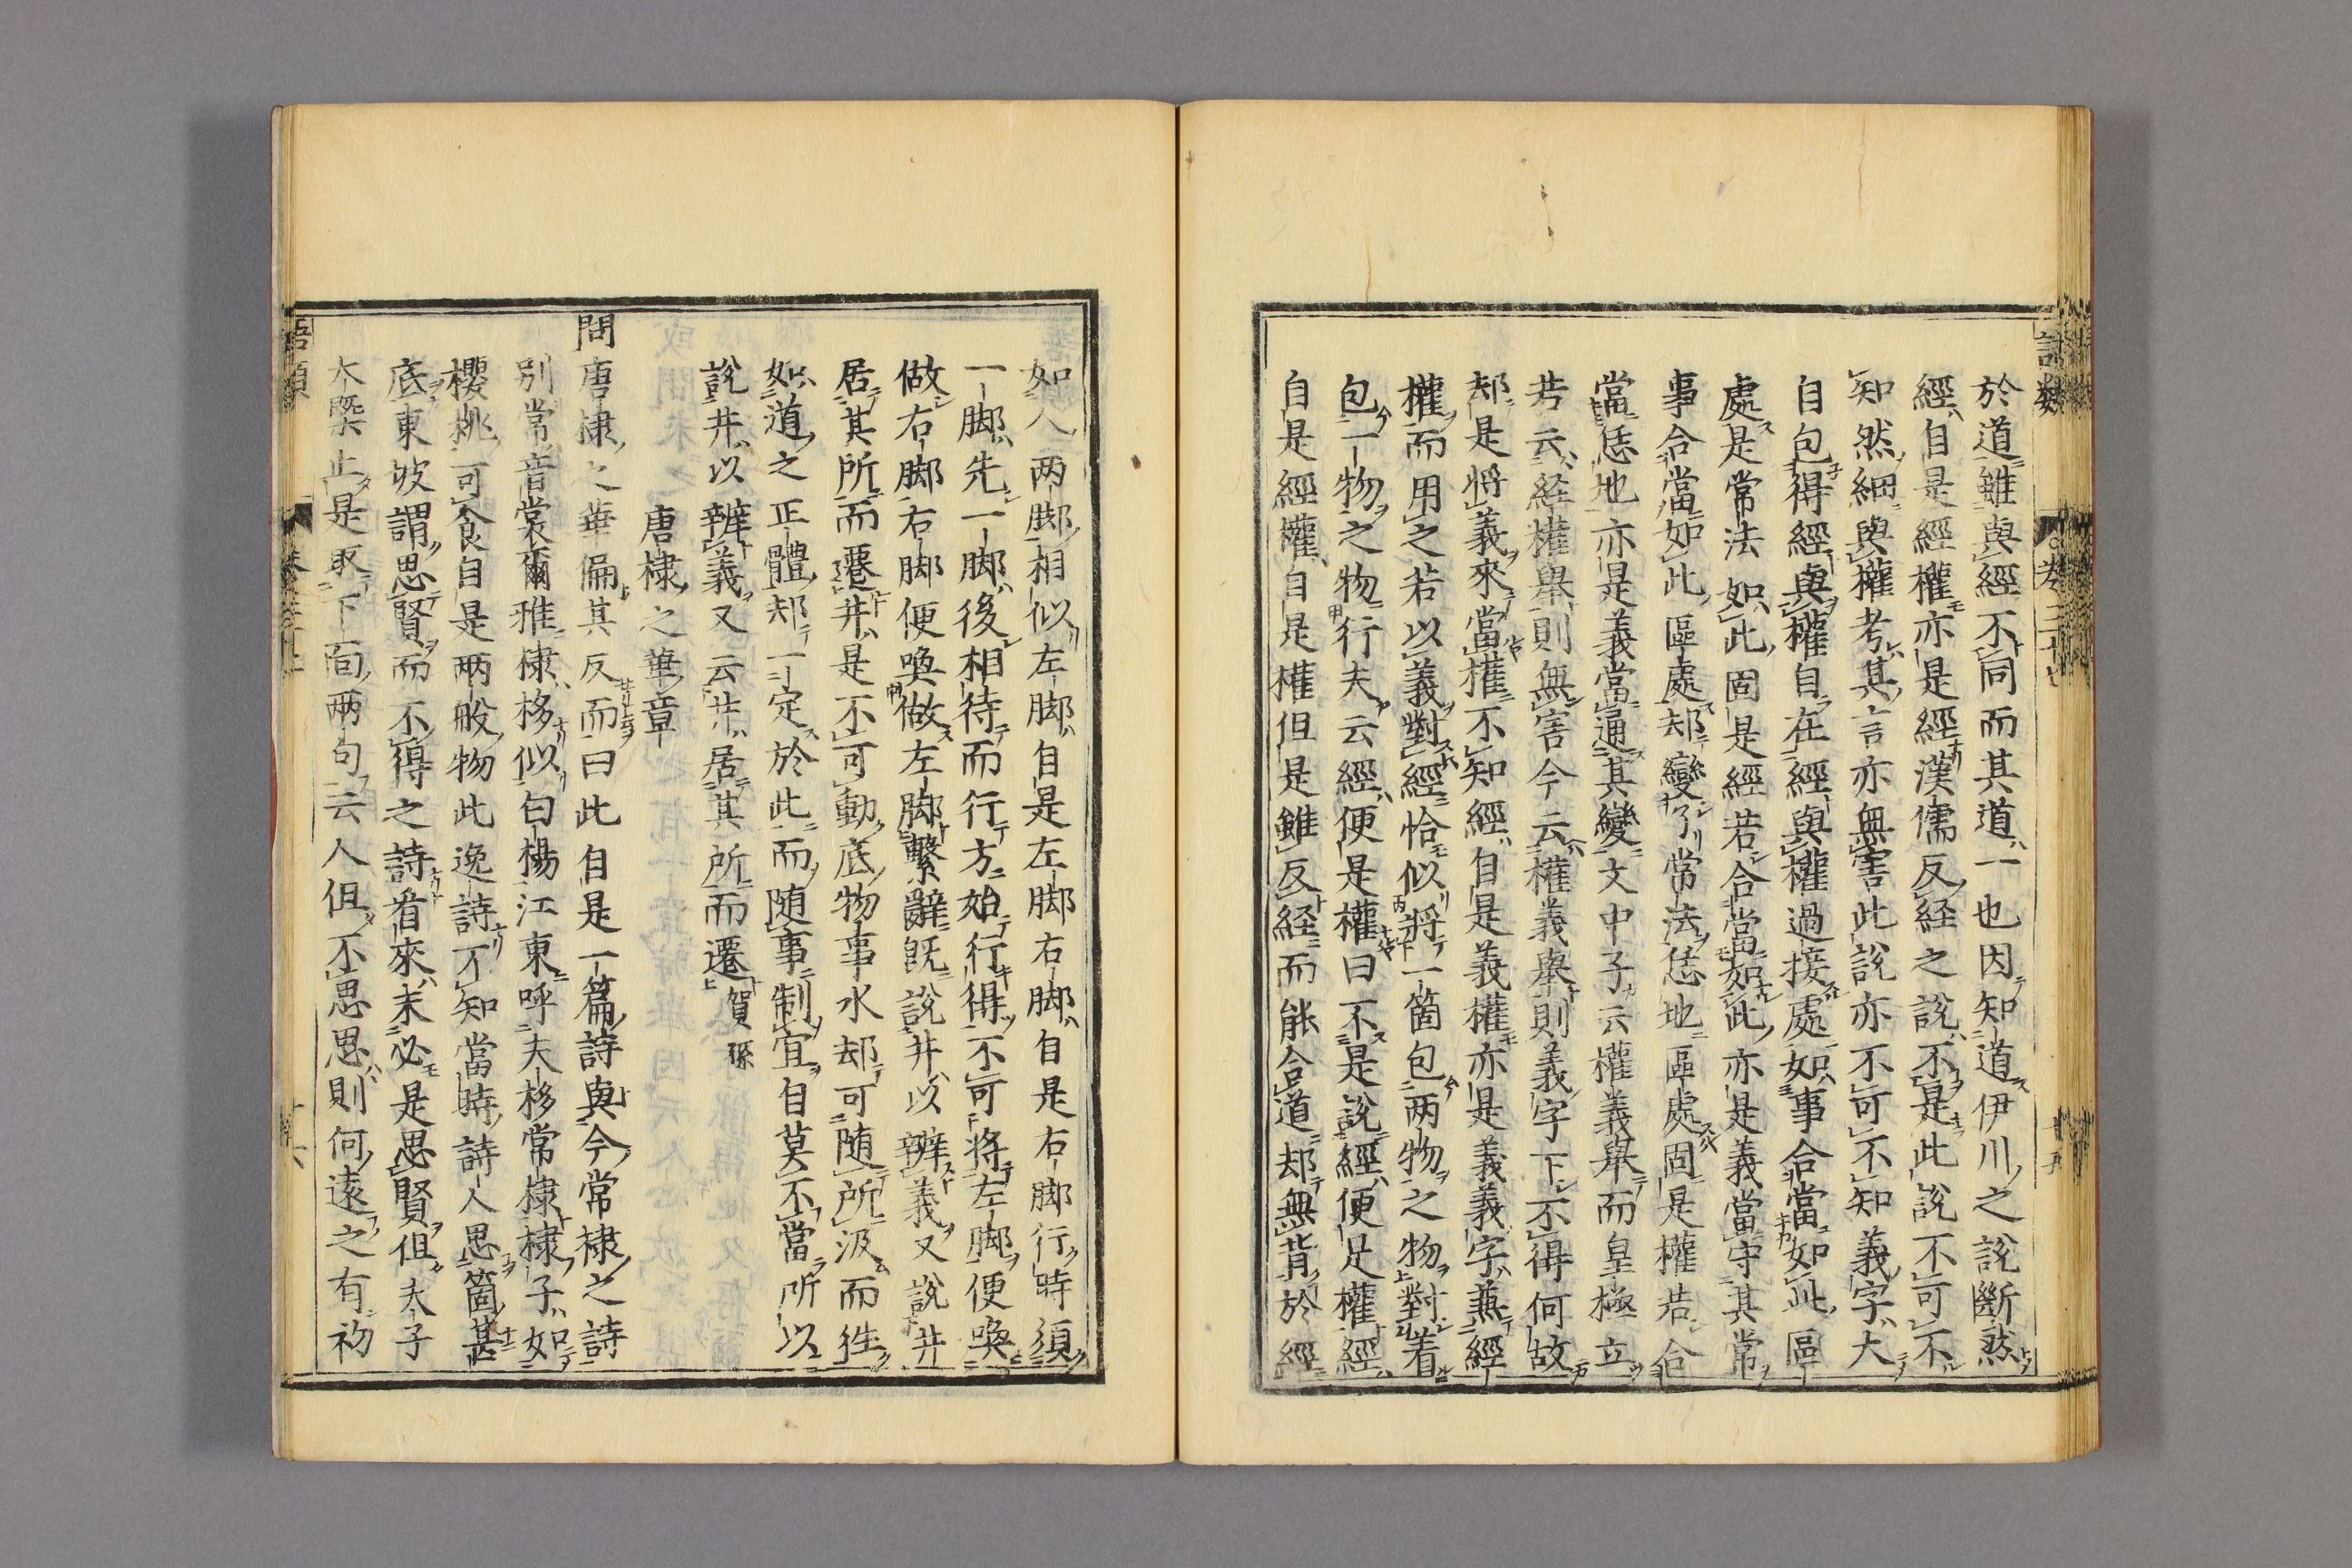 語類 卷三十七 十五
於道雖與經不同而其道一也因知道伊川之說斷然
經自是經權亦是經漢儒反経之說不是此說不可不
知然細與權考其言亦無害此說亦不可不知義字大
自包得經與權自在經與權過接處如事合當如此區
處是常法如此固是經若合當如此亦是義當守其常
事合當如此區處却變了常法恁地區處固是權若合
當恁地亦是義當通其變文中子云權義舉而皇極立
若云経權舉則無害今云權義舉則義字下不得何故
却是將義來當權不知經自是義權亦是義義字兼經
權而用之若以義對經恰似將一箇包兩物之物對着
包一物之物行夫云經便是權曰不是說經便是權經
自是經權自是權但是雖反経而能合道却無背於經
如人兩脚相似左脚自是左脚右脚自是右脚行時須
一脚先一脚後相待而行方始行得不可將左脚便喚
做右脚右脚便喚做左脚繫辭既說井以辨義又說井
居其所而遷井是不可動底物事水却可隨所汲而徃
如道之正體却一定於此而隨事制宜自莫不當所以
說井以辨義又云井居其所而遷賀孫
唐棣之華章
問唐棣之華偏其反而曰此自是一篇詩與今常棣之詩
別常音裳爾雅棣栘似白楊江東呼夫栘常棣棣子如
櫻桃可食自是兩般物此逸詩不知當時詩人思箇甚
底東坡謂思賢而不得之詩看來未必是思賢但夫子
大槩止是取下面兩句云人但不思思則何遠之有初
語類 十六